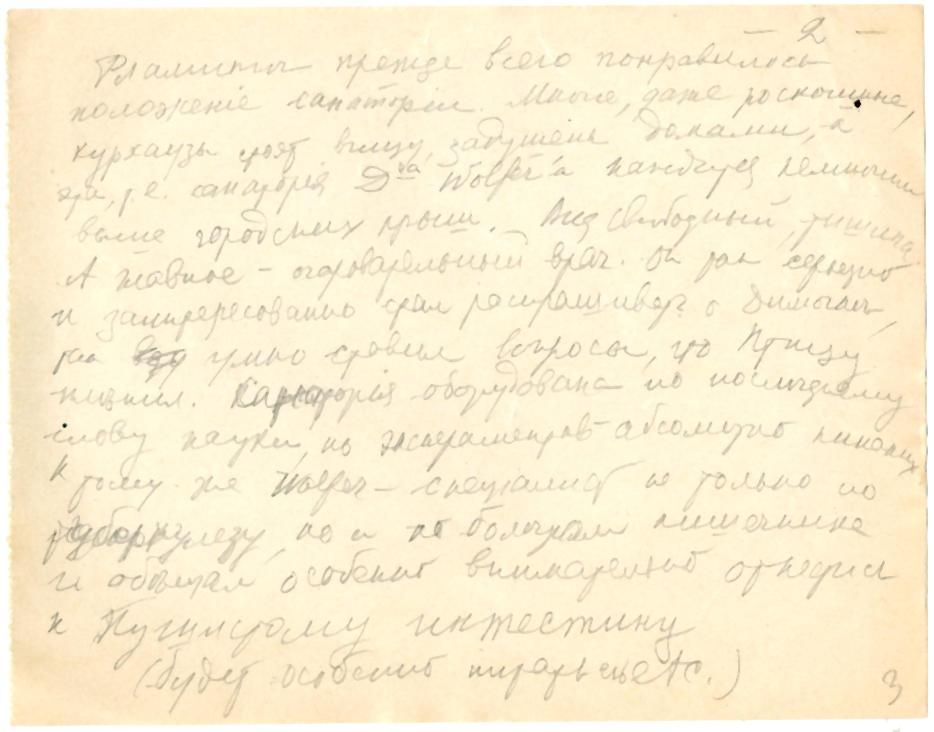 — 2 —
прежде всего понравилось
положенiе санаторiи. Многие, даже роскошные,
курхаузы стоят внизу, задушены домами, а
эта, т.е. санаторiя Dra Wolfer'а находится немного
выше городских крыш. Вид свободный, тишина.
А главное – очаровательный врач. Он так серьезно
и заинтересованно стал расспрашивать о
так умно ставил вопросы, что Птицу
пленил. Санаторiя оборудована по последнему
слову науки, но экспериментов абсолютно никаких
К тому же Wolfer – специалист не только по
туберкулезу, но и по болезням кишечника
и обещал особенно внимательно отнестись
к Пушистому интестину
(будет особенно питать съе )
3